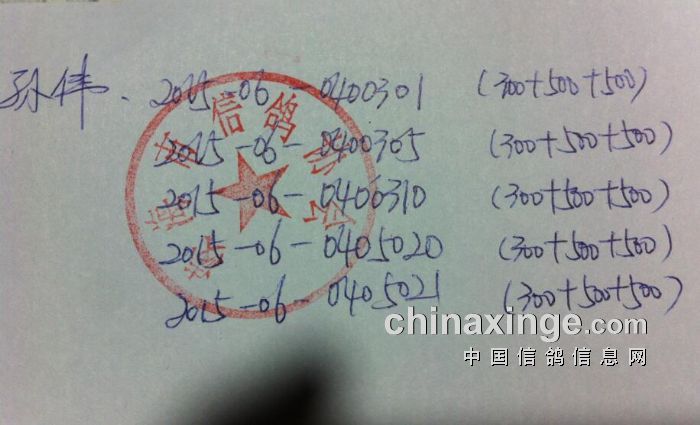 孙伟. 2015-06-0400301 (300+500+500)
2015-06-0400305 (300+500+500)
2015-06-0400310 (300+500+500)
2015-06-0405020 (300+500+500)
2015-06-0405021 (300+500+500)
信鸽
chinaxinge.com
中国信鸽信息网